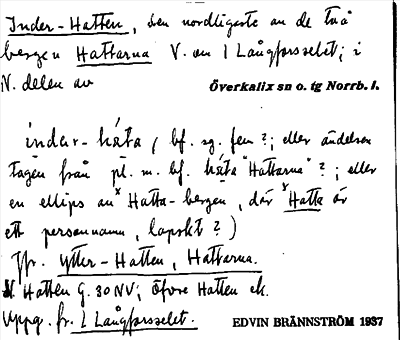 Inder-Hatten, den nordligaste av de två
bergen Hattarna V. om l Långforsselet; i
N. delen av
Överkalix sn o. tg Norrb. l.
inder-háta ( bf. sg. fem ?; eller ändelsen
tagen från pl. m. bf. háta "Hattarna" ?; eller
en ellips av *Hatta-bergen, där *Hatta är
ett personnamn, lapskt ?)
Jfr. Ytter-Hatten, Hattarna.
N Hatten G. 30 NV; Övre Hatten ek.
Uppg. fr. L Långforsselet.
EDVIN BRÄNNSTRÖM 1937